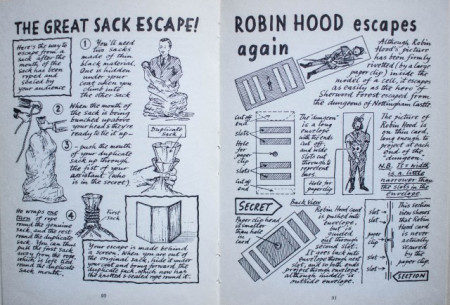 THE GREAT SACK ESCAPE!
Here's the way to
escape from a
sack after the
neck of the
sack has been
roped and
sealed by
your audience
1
You'll need
two sacks
made of thin
black material.
One is hidden
under your
coat when you
climb into
the other sack
2
When the mouth of
the sack is being
bunched up above
your head & they're
ready to tie it up —
Duplicate
3
- push the mouth
of your duplicate
sack up through
the fist of your
assistant (who
is in the secret)
He wraps one
turn of rope
round the genuine
sack, and the rest
round the duplicate
sack. You can thus
pull the first sack
away from the rope,
which is left tied
round the duplicate
sack mouth.
4
First
sack
Your escape is made behind
a screen. When you are out of
the original sack, hide it under
your coat and bring forward the
duplicate sack, which now has
the knotted & sealed rope round it.
50
ROBIN HOOD escapes
again
Although Robin
Hood's picture
has been firmly
rivetted (by a large
paper clip) inside the
model of a cell, it escapes
as easily as the hero of
Sherwood Forest escaped from
the dungeons of Nottingham Castle.
Cut off
end
slots
Hole
for
paper
clip
slots
Cut off
end
The 'dungeon' is
a long
envelope
with the ends
cut off
and wide
slots cut
through it to
represent
bars.
Hole for
paperclip
The picture of
Robin Hood is
on thin card,
long enough to
project at each
end of the
'dungeon'.
N.B. Its width
is a little
narrower than
the slots in the
envelope
SECRET
Back View
Paper clip head
is smaller
than hole
for card
Robin Hood card
is pushed into
envelope,
but is
guided out
through
second slot.
It goes back into
envelope through next
slot, and so both ends
project through envelope,
although middle is
outside envelope
slot
slot
paper
clip
slot
slot
This section
view shows
that Robin
Hood card
is never
actually
secured
by the
paperclip
SECTION
51